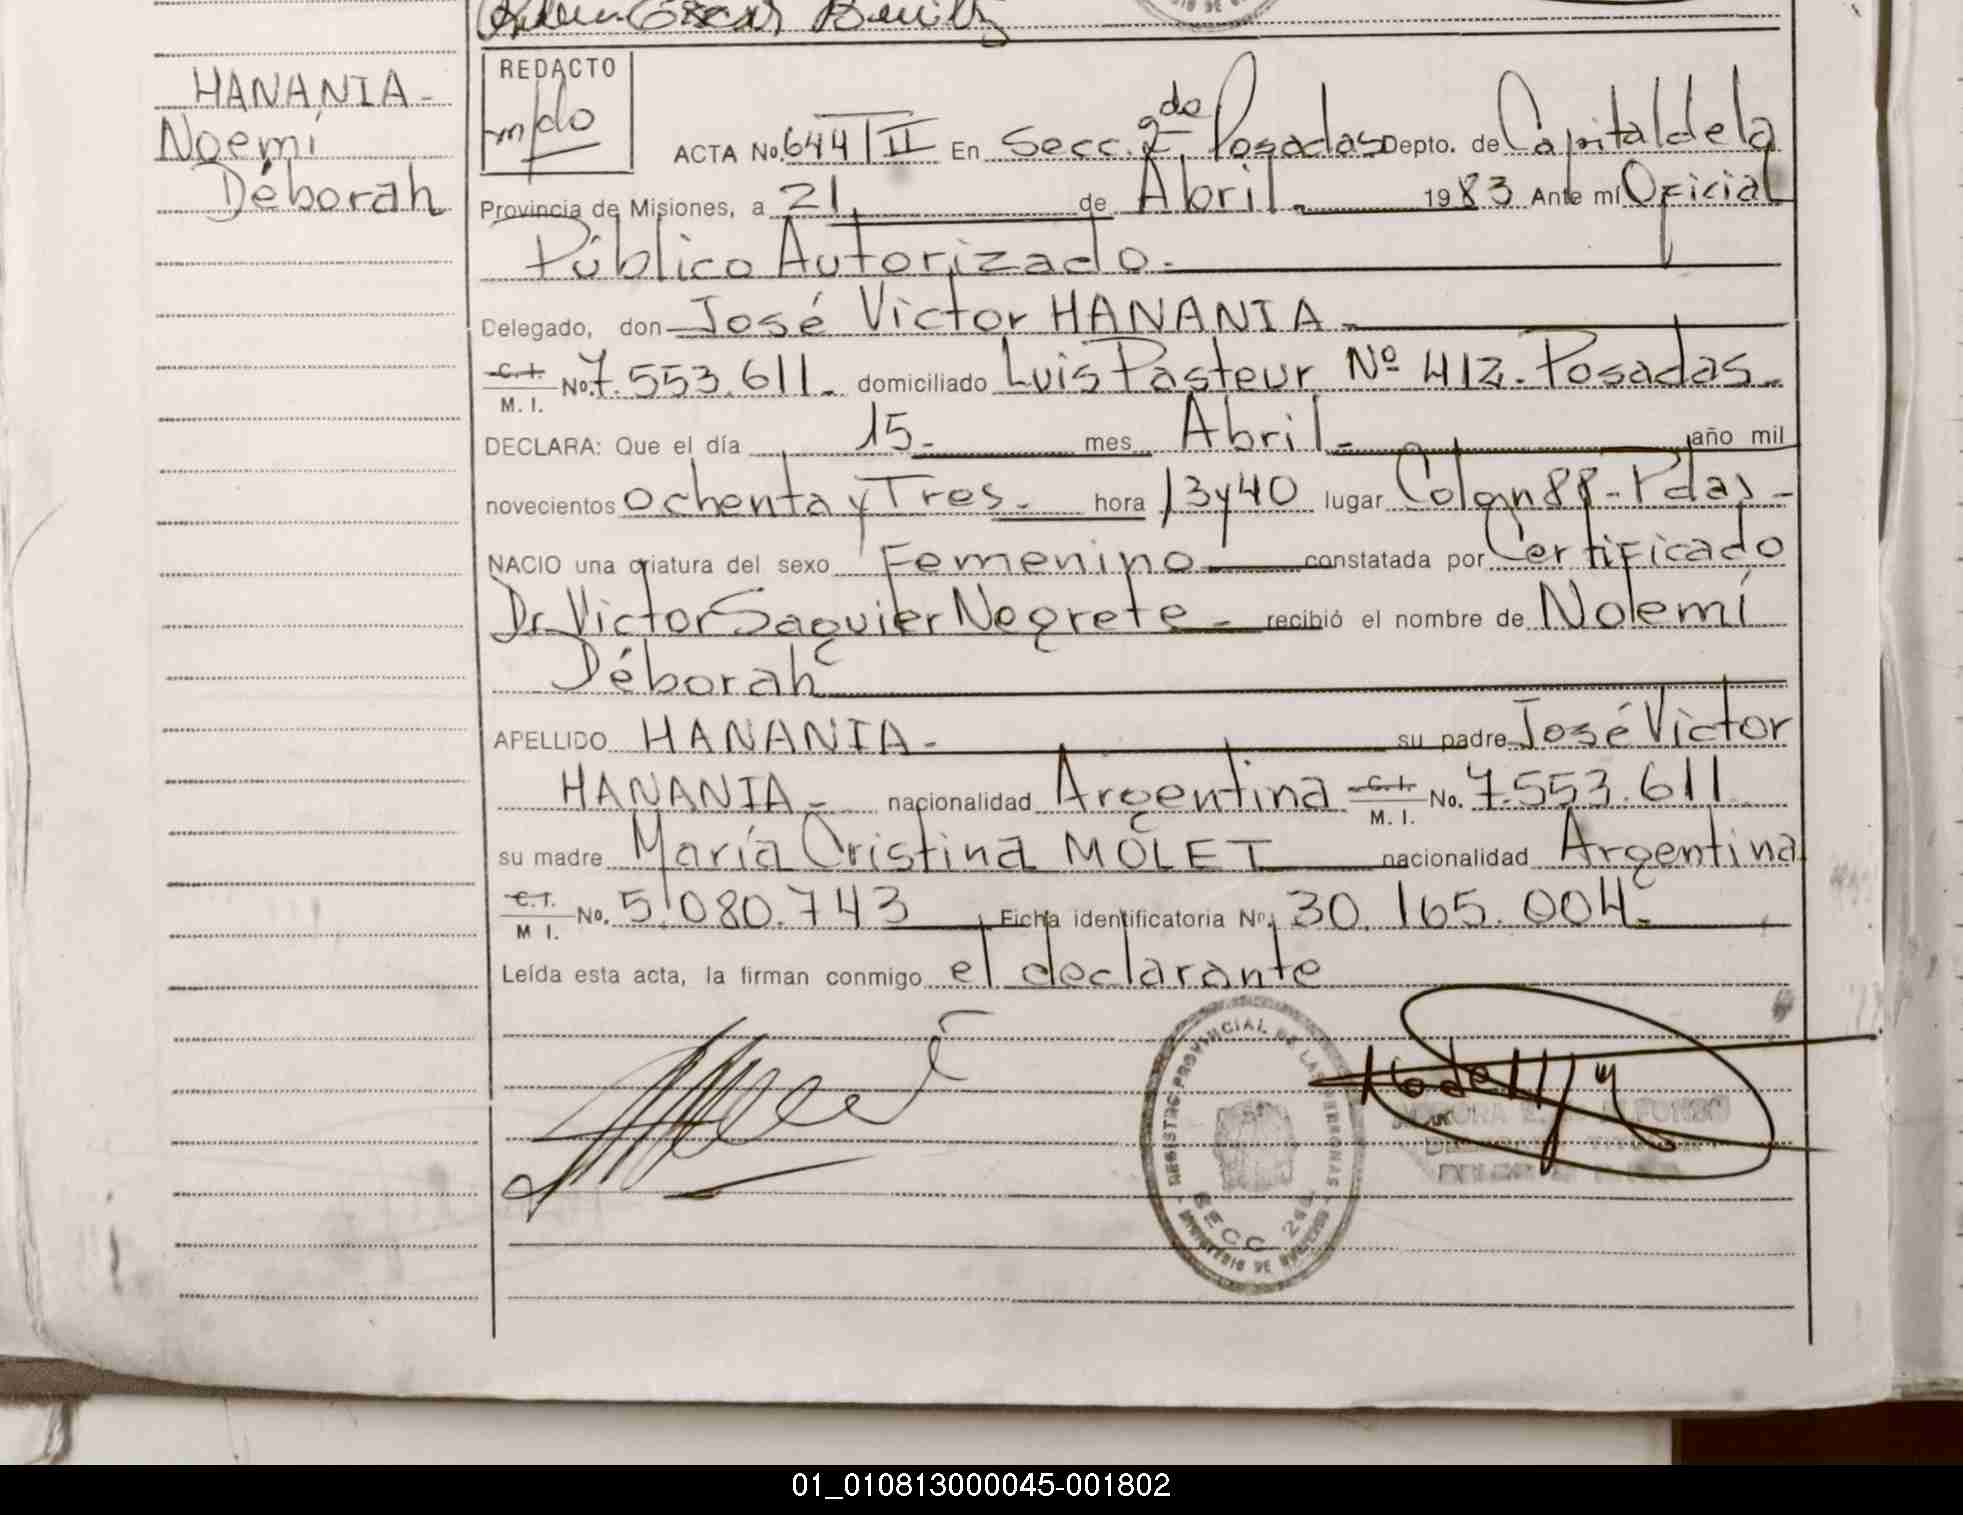 HANANIA-
Noemí
Déborah
REDACTO
ACTA No. 644 T II En Secc. 2da Posadas Depto. de Capital de la
Provincia de Misiones, a 21 de Abril.- 1983 Ante mí Oficial
Público Autorizado.-
Delegado, don José Victor HANANIA-
C.I. M. I. No. 7.553.611.- domiciliado Luis Pasteur Nº 412.- Posadas.-
DECLARA: Que el día 15- mes Abril.- año mil
novecientos ochenta y Tres.- hora 13y40 lugar Colón 88-Pdas-
NACIO una criatura del sexo Femenino constatada por Certificado
Dr. Victor Saguier Negrete.- recibió el nombre de Noemí
Déborah
APELLIDO HANANIA- su padre José Victor
HANANIA- nacionalidad Argentina C.I. M. I. No. 7.553.611
su madre María Cristina MOLET nacionalidad Argentina
C.I. M I. No. 5.080.743 Ficha identificatoria No. 30.165.004-
Leída esta acta, la firman conmigo el declarante
REGISTRO PROVINCIAL DE LAS PERSONAS
SECC 2da
MINISTERIO DE GOBIERNO
01_010813000045-001802